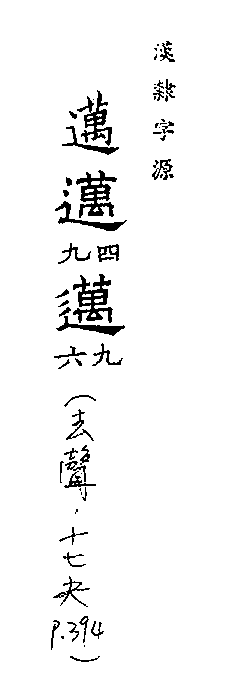 漢隸字源
邁邁四九邁九六(去聲.十七夬P.394)